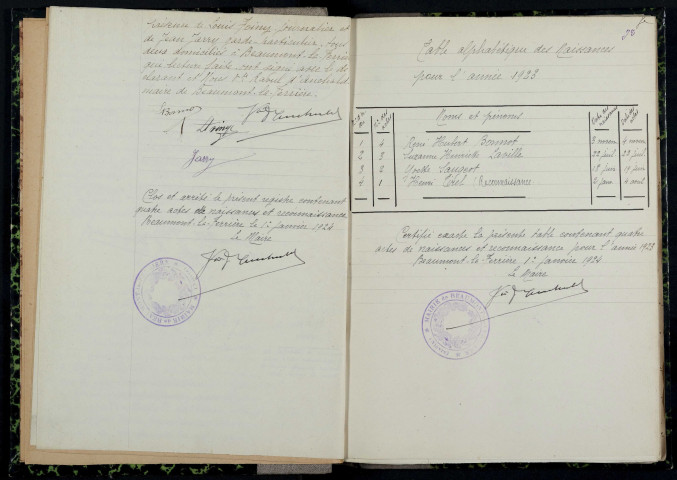 de Louis Foing journalier et
de Jean Jarry garde-particulier, tous
deux domiciliés à Beaumont-la-Ferrière
qui lecture faite ont signé avec le dé
clarant et Nous
maire de Beaumont-la-Ferrière.
Bonnot
Jarry
Clos et arrêté le présent registre contenant
quatre actes de naissances et reconnaissance
Beaumont-la-Ferrière le 1er janvier 1924
le Maire
Table alphabétique des Naissances
pour l'année 1923
Noms et prénoms
1 4 René Hubert Bonnot 3 novem 4 novem
2 3 Suzanne Henriette Laville 22 juil 22 juil
3 2 Yvette Saugeot 18 juin 19 juin
4 1 Henri Edel (Reconnaissance
Certifié exacte la présente table contenant quatre
actes de naissances et reconnaissance pour l'année 1923
Beaumont-la-Ferrière 1er janvier 1924
Le Maire
MAIRIE DE BEAUMONT